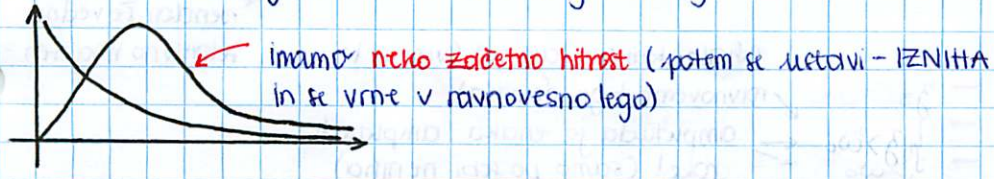 imamo neko začetno hitrost (potem se ustavi - IZNIHA
in se vrne v ravnovesno lego)